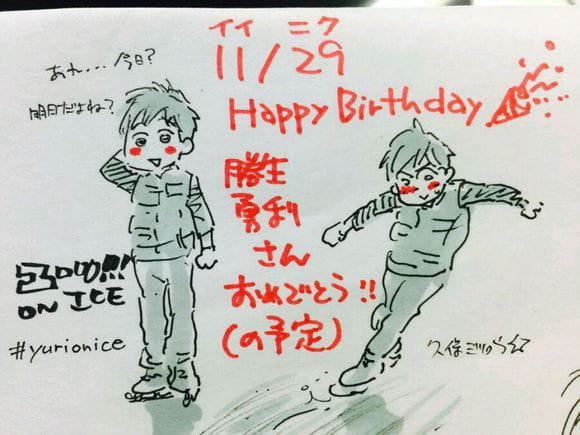 イイ ニク
11/29
Happy Birthday
あれ... 今日?
明日だよね?
勝生
勇利
さん
おめでとう!!
(の予定)
ON ICE
#yurionice